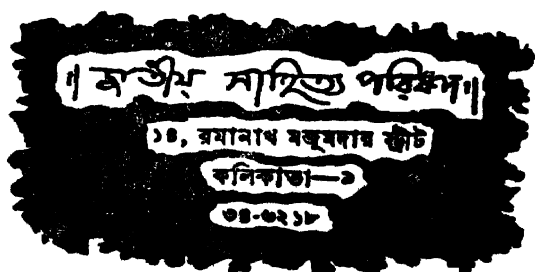 ॥ জাতীয় সাহিত্য পরিষদ ॥
১৪, রমানাথ মজুমদার স্ট্রীট
কলিকাতা—৯
৩৪-৬২১৮